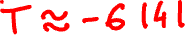 T ≈ -6 141